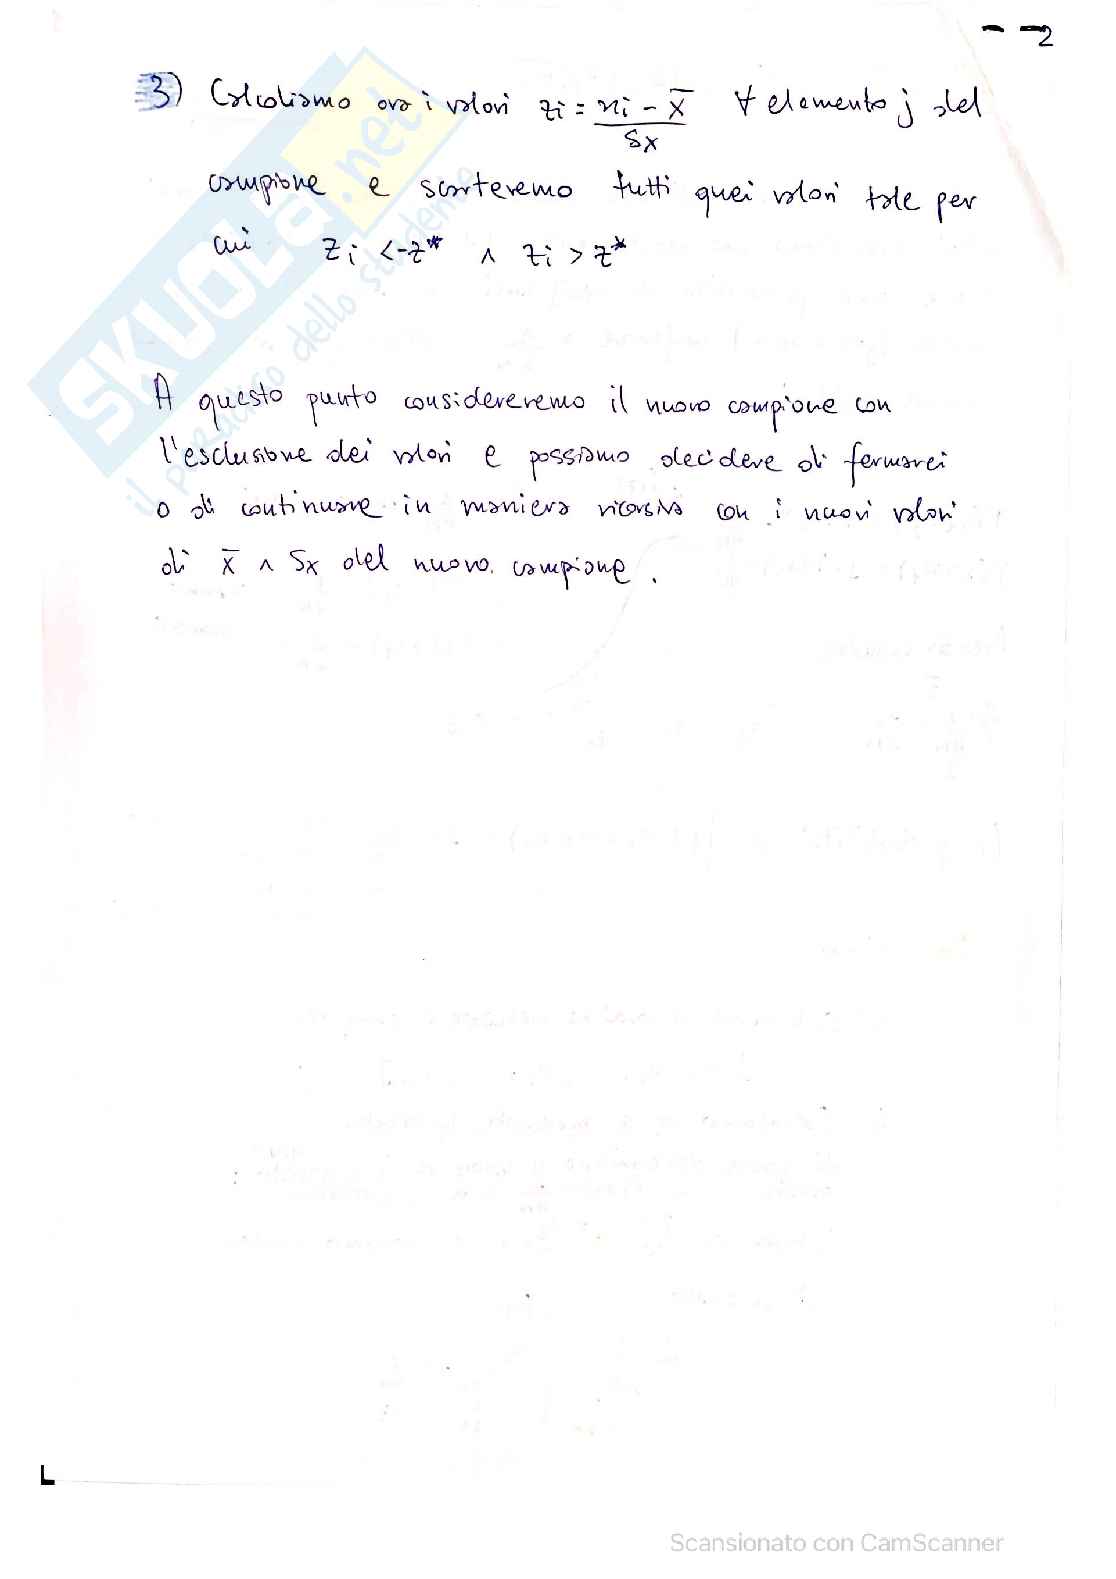 2
3) Calcoliamo ora i valori zi = xi - x̄ / Sx ∀ elemento j del
campione e scarteremo tutti quei valori tale per
cui zi < -z* ∧ zi > z*
A questo punto considereremo il nuovo campione con
l'esclusione dei valori e possiamo decidere di fermarci
o di continuare in maniera ricorsiva con i nuovi valori
di x̄ ∧ Sx del nuovo campione.
SKUOLA.net
il paradiso dello studente
Scansionato con CamScanner